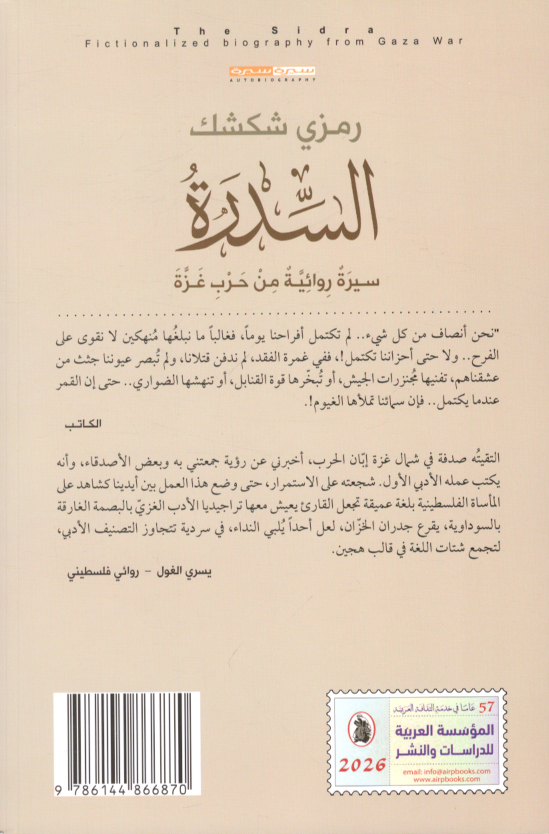 The Sidra
Fictionalized biography from Gaza War
سيرة سيرة
AUTOBIOGRAPHY
رمزي شكشك
السِّدرَةُ
سيرَةٌ رِوائِيَّةٌ مِنْ حَرْبِ غَزَّةَ
"نحن أنصاف من كل شيء.. لم تكتمل أفراحنا يوماً، فغالباً ما نبلغُها مُنهكين لا نقوى على
الفرح.. ولا حتى أحزاننا تكتمل!، ففي غمرة الفقد، لم ندفن قتلانا، ولم تُبصر عيوننا جثث من
عشقناهم، تفنيها مُجنزرات الجيش، أو تُبخّرها قوة القنابل، أو تنهشها الضواري.. حتى إن القمر
عندما يكتمل.. فإن سمائنا تملأها الغيوم!.
الكاتب
التقيتُه صدفة في شمال غزة إبّان الحرب، أخبرني عن رؤية جمعتني به وبعض الأصدقاء، وأنه
يكتب عمله الأدبي الأول. شجعته على الاستمرار، حتى وضع هذا العمل بين أيدينا كشاهد على
المأساة الفلسطينية بلغة عميقة تجعل القارئ يعيش معها تراجيديا الأدب الغزيّ بالبصمة الغارقة
بالسوداوية، يقرع جدران الخزّان، لعل أحداً يُلبي النداء، في سردية تتجاوز التصنيف الأدبي،
لتجمع شتات اللغة في قالب هجين.
يسري الغول – روائي فلسطيني
57 عامًا في خدمة الثقافة العربية
المؤسسة العربية
للدراسات والنشر
2026
email: info@airpbooks.com
www.airpbooks.com
9 786144 866870